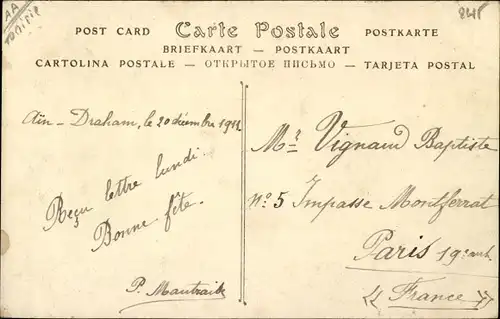 AA
TUNISIE
POST CARD Carte Postale POSTKARTE
BRIEFKAART — POSTKAART
CARTOLINA POSTALE — ОТКРЫТОЕ ПИСЬМО — TARJETA POSTAL
Aïn-Draham, le 20 décembre 1911
Reçu lettre lundi.
Bonne fête.
Mr Vignaud Baptiste
No 5 Impasse Montferrat
Paris
France